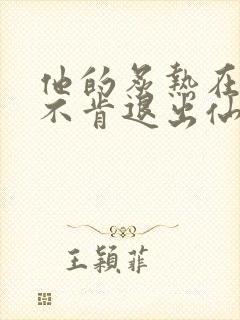 他的炙熱在
不肯退出仙
王穎菲